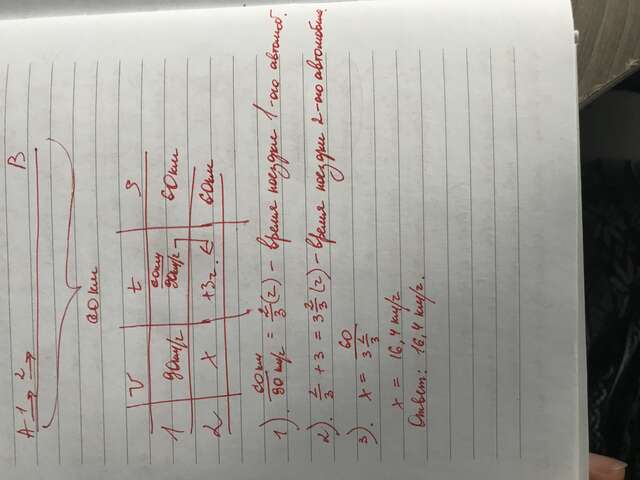 A 1 2 B
60 км
v t S
1 90км/ч 60км/90км/ч 60км
2 x +3ч. 60км
1). 60 км/90 км/ч = 2/3 (ч) - время поездки 1-ого автомоб.
2). 2/3 + 3 = 3 2/3 (ч) - время поездки 2-ого автомобиля
3). x = 60/3 2/3
x = 16,4 км/ч
Ответ: 16,4 км/ч.